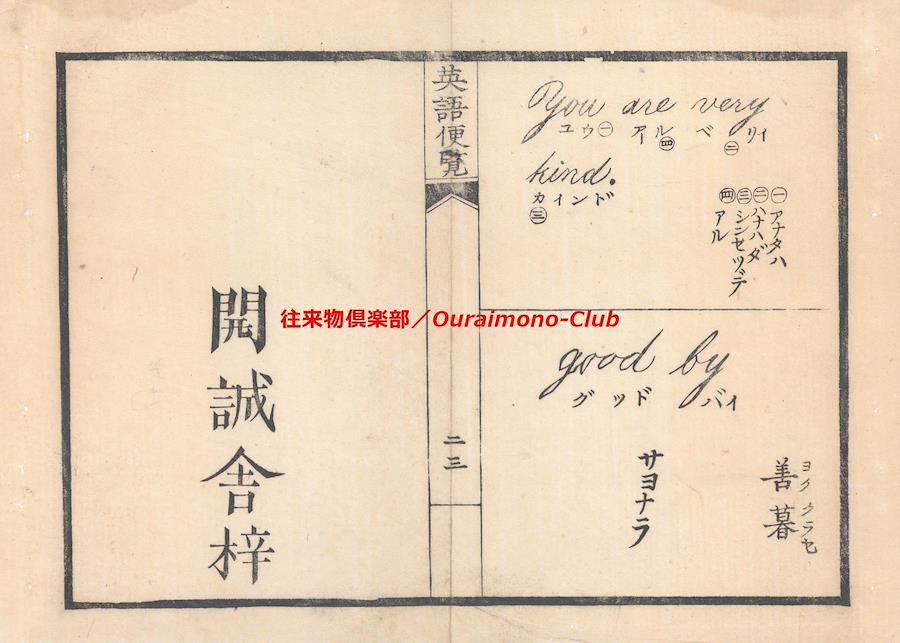 You are very
ユウ㊀ アール㊃ ベリイ㊁
kind.
カインド㊂
㊀アナタハ
㊁ハナハダ
㊂シンセツデ
㊃アル
good by
グッド バイ
善暮
ヨククラセ
サヨナラ
英語便覧
二三
開誠舎梓
往来物倶楽部／Ouraimono-Club